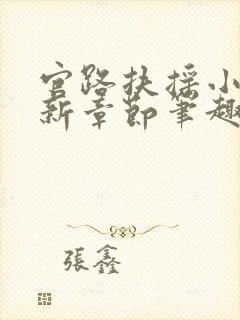 官路扶摇小
新章节笔趣
張鑫